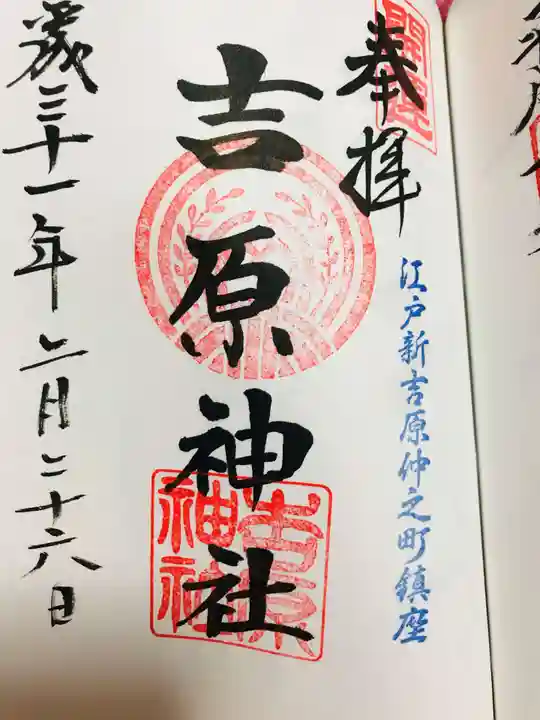 開運
奉拝
江戸新吉原仲之町鎮座
吉原神社
吉原神社
歳三十一年二月二十六日